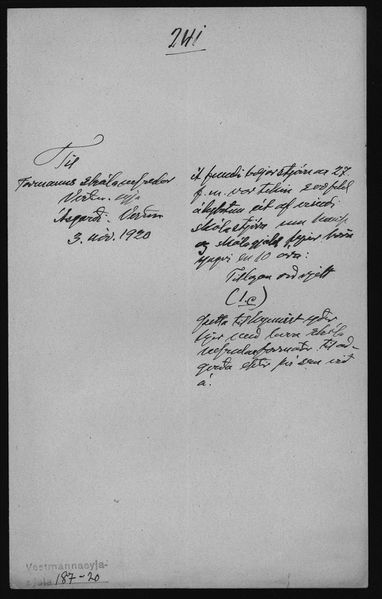 241
Til
Formanns skólanefndar
Vestm. eyja
Ásgarði. Vestm.
3. nóv. 1920
Á fundi bæjarstjórnar 27.
f.m. var tekin
ályktun út af erindi
skólastjóra um
og skólagjald fyrir börn
yngri en 10 ára:
Tillagan orðrjett
(1.c)
Þetta tilkynnist yður
hjer með herra skóla
nefndarformaður til að-
gerða eftir því sem við
á.
Vestmannaeyja-
187-20